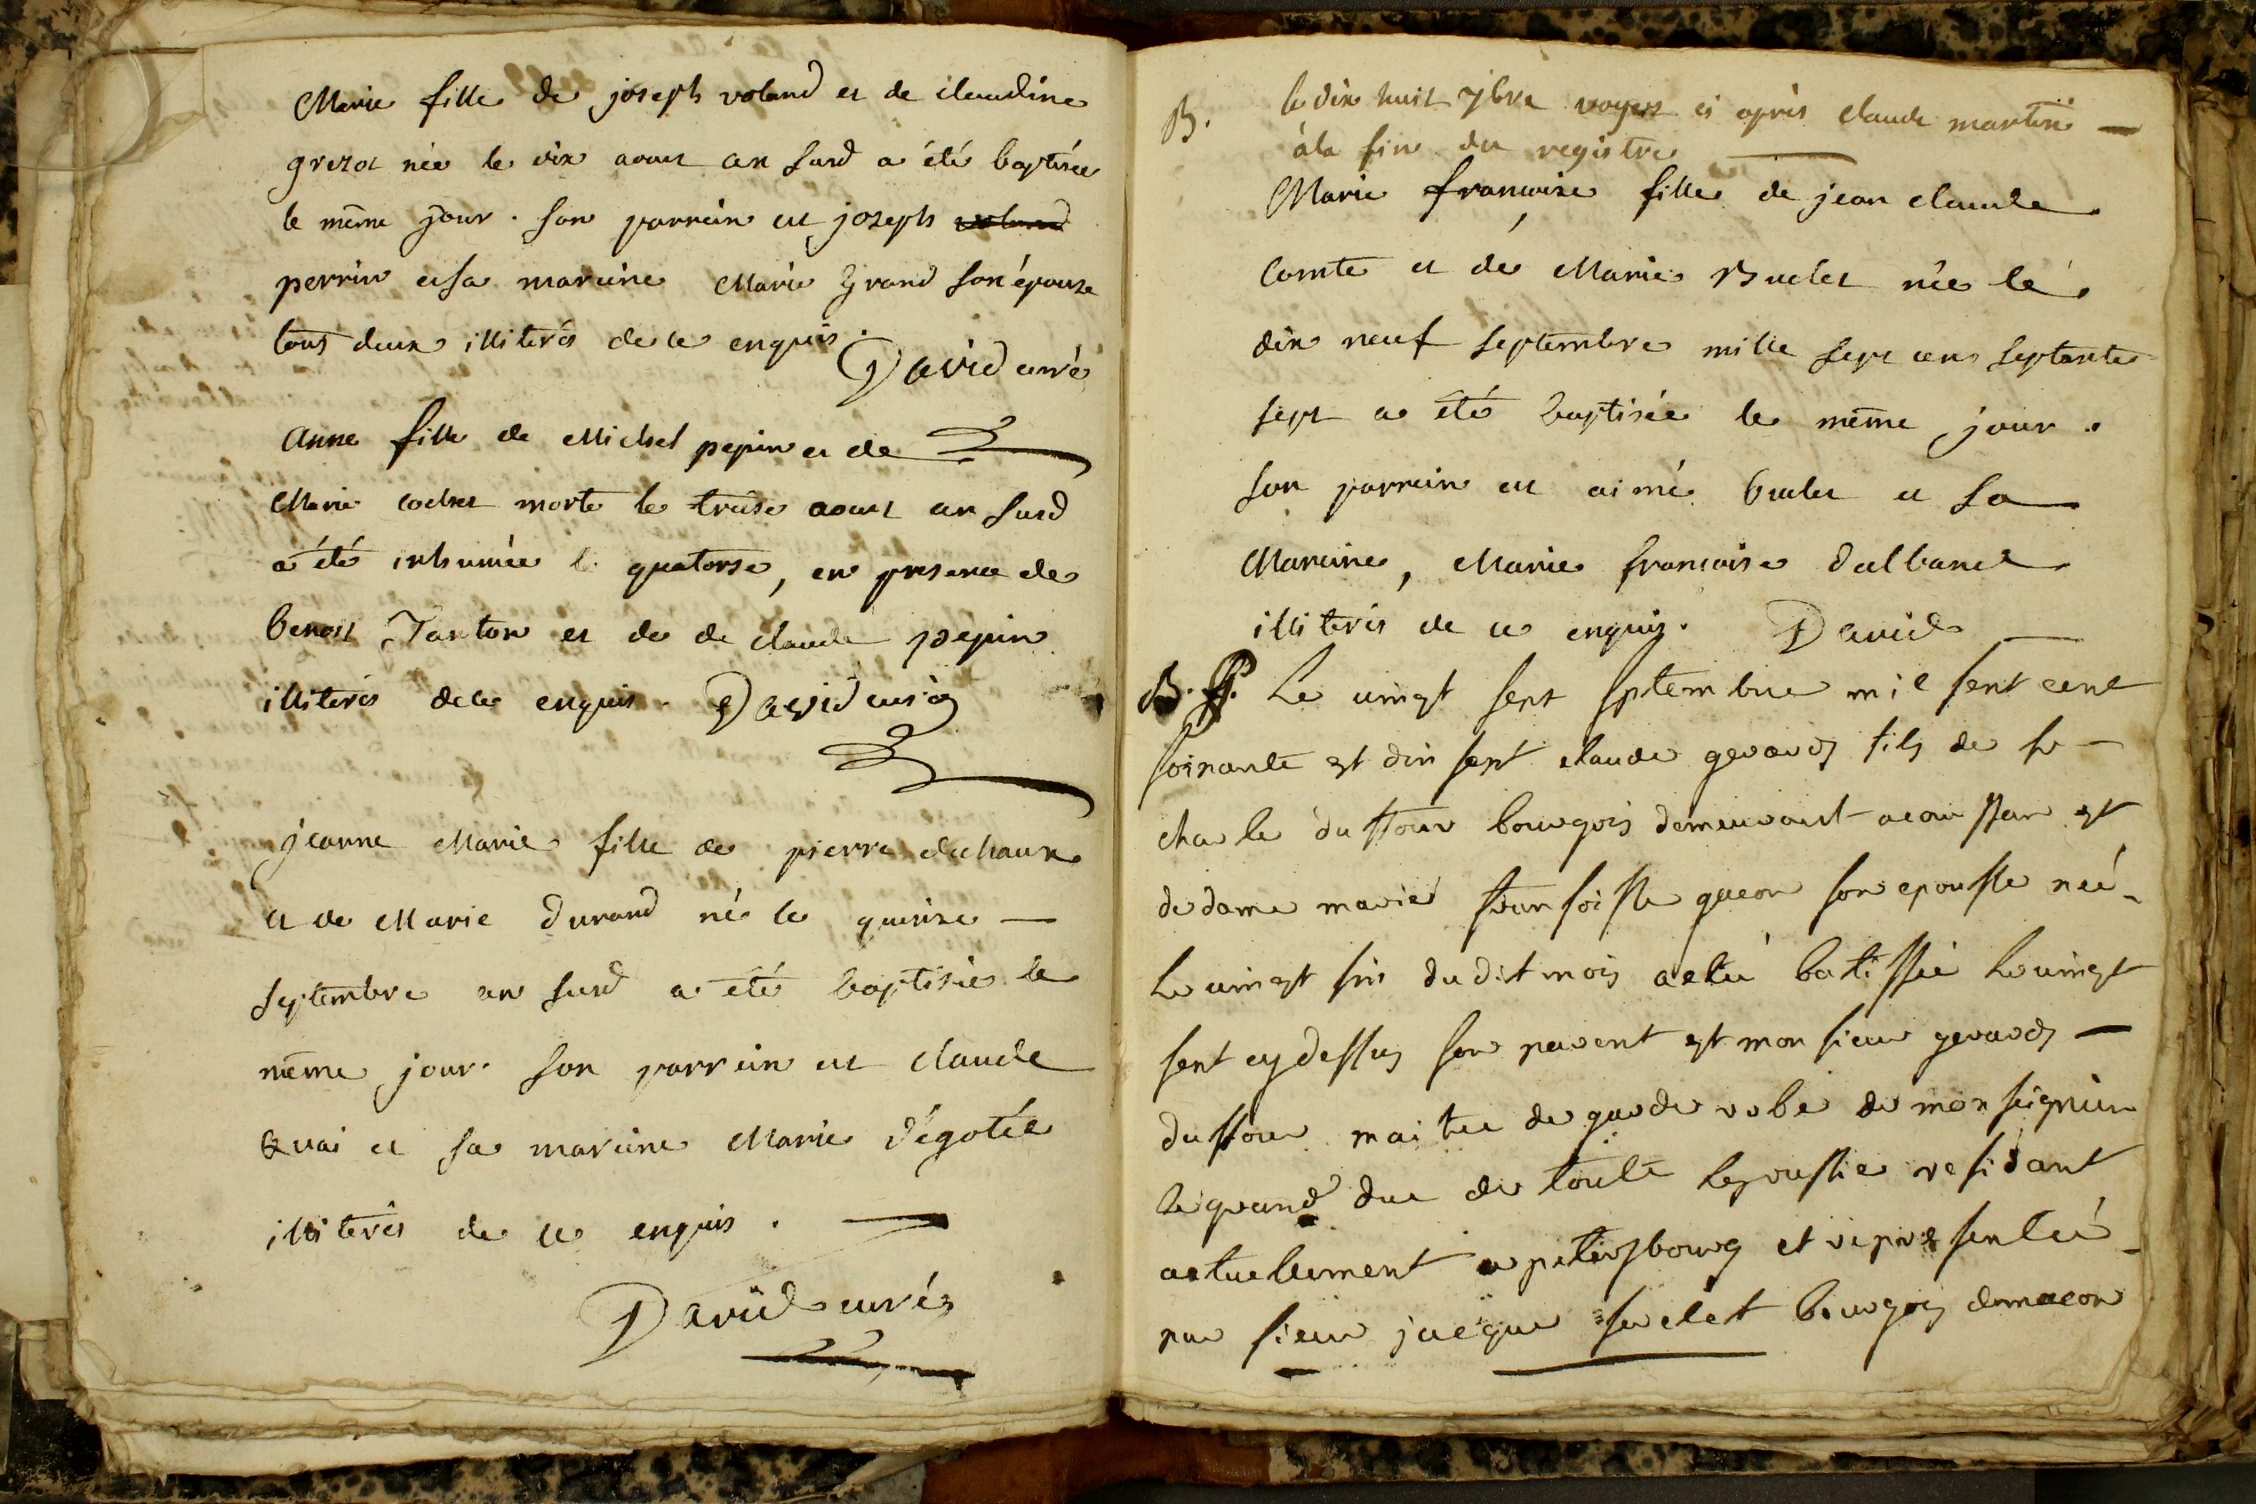 Marie fille de joseph voland et de claudine
grezot née le dix aout an susd a été baptisée
le même jour. son parrain est joseph voland
perrin et sa maraine Marie Grand son épouse
tous deux illiterés de ce enquis.
David curé
anne fille de Michel pepin et de
Marie cochet morte le treise aout an susd
a été inhumée le quatorse, en presence de
benoit Tanton et de de claude pepin
illiterés de ce enquis. David curé
jeanne Marie fille de pierre dechaux
et de Marie Durand né le quinze
septembre an susd a été baptisée le
même jour. son parrain est claude
Quai et sa maraine Marie Dégotée
illiterés de ce enquis.
David curé
B. le dix huit 7bre voyez ci après claude martin
à la fin du registre
Marie francoise fille de jean claude
Comte et de Marie Buclet née le
dix neuf septembre mille sept cens septante
sept a été baptisée le même jour.
son parrain est aimé buclet et sa
Maraine, Marie francoise Dalbanet
illiterés de ce enquis. David
B. Le vingt sept septembre mil sept cent
soixante et dix sept claude gerard fils de sr
charle duffour bourgois demeurant a coursan et
de dame marie franfoisse gueon son epousse neé
le vingt six du dit mois a eté batissé le vingt
sept cy dessus son parent est monsieur gerard
duffour maitre de garde robe de monseignieur
le grand duc de toute les russie residant
actuellement a petersbourg et representeé
par sieur jacque buclet bourgois de macon